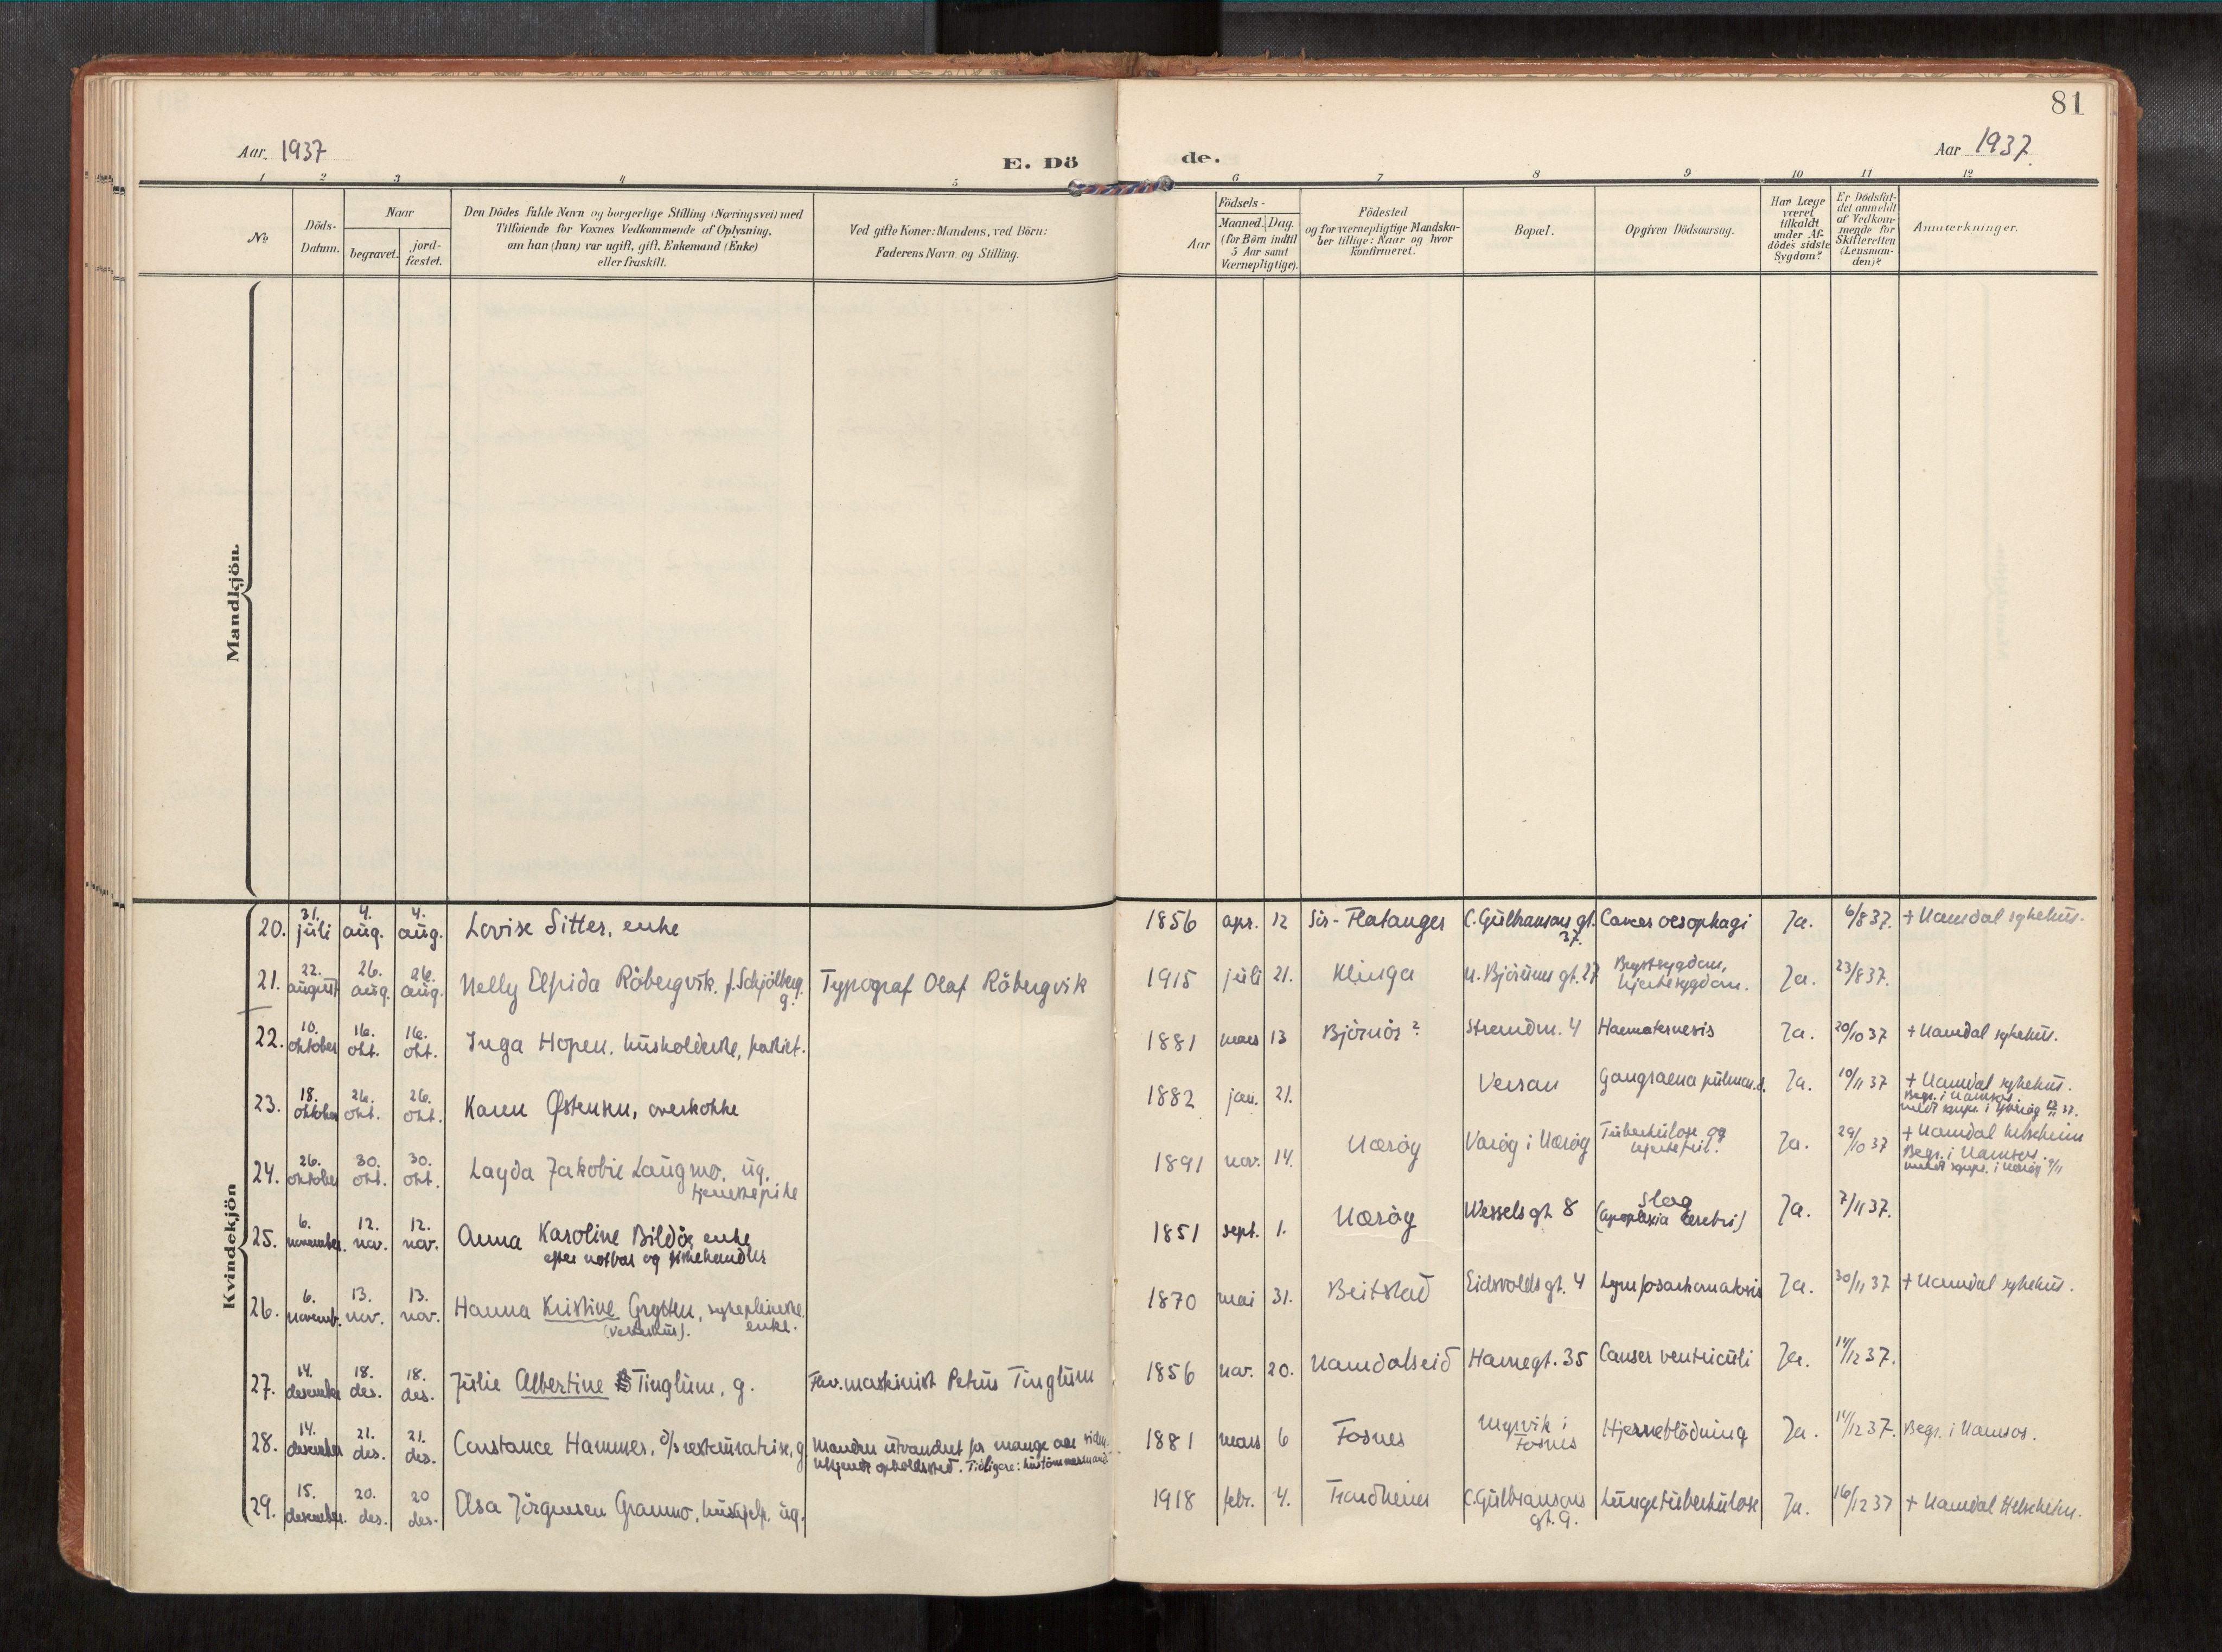 81
Aar 1937
E. Dö
de.
Aar 1937.
1 2 3 4 5 6 7 8 9 10 11 12
No
Döds-
Datum.
Naar
begravet.
jord-
fæstet.
Den Dödes fulde Navn og borgerlige Stilling (Næringsvei) med
Tilföiende for Voxnes Vedkommende af Oplysning,
om han (hun) var ugift, gift, Enkemand (Enke)
eller fraskilt.
Ved gifte Koner: Mandens, ved Börn:
Faderens Navn og Stilling.
Födsels-
Aar
Maaned. Dag.
(for Börn indtil
5 Aar samt
Værnepligtige).
Födested
og for værnepligtige Mandska-
ber tillige: Naar og hvor
konfirmeret.
Bopæl.
Opgiven Dödsaarsag.
Har Læge
været
tilkaldt
under Af-
dödes sidste
Sygdom?
Er Dödsfal-
det anmeldt
af Vedkom-
mende for
Skifteretten
(Lensman-
den)?
Anmærkninger.
Mandkjön.
Kvindekjön
20. 31. juli 4. aug. 4. aug. Lovise Sitter, enke
1856 apr. 12 Sör-Flatanger C. Gulbransons gt. 37. Cancer oesophagi Ja. 6/8 37. + Namdal sykehus.
21. 22. august 26. aug. 26. aug. Nelly Elpida Råbergvik, f. Schjölberg, g. Typograf Olaf Råbergvik
1915 juli 21. Klinga N. Bjørums gt. 27 Brystsygdom, hjertesygdom. Ja. 23/8 37.
22. 10. oktober 16. okt. 16. okt. Inga Hopen, husholderske,
1881 mars 13 Björnör? Strandvn. 4 Haematemesis Ja. 20/10 37 + Namdal sykehus.
23. 18. oktober 26. okt. 26. okt. Karen Østensen, overkokke
1882 jan. 21. Gangraena pulmon. Ja. 10/11 37 + Namdal sykehus.
Begr. i Namsos.
24. 26. oktober 30. okt. 30. okt. Layda Jakobie Laugmo, ug.
tjenestepike
1891 nov. 14. Nærøy Varøy i Nærøy Tuberkulose og hjertefeil. Ja. 29/10 37 + Namdal helseheim
Begr. i Namsos.
25. 6. november. 12. nov. 12. nov. Anna Karoline Bildöe, enke
efter notbas og fiskehandler
1851 sept. 1. Nærøy Wessels gt. 8 Slag (apoplexia cerebri) Ja. 7/11 37.
26. 6. novemb. 13. nov. 13. nov. Hanna Kristine Grytten, sykepleierske
enke.
1870 mai 31. Beitstad Eidsvolds gt. 4 Lymfosarkomatosis Ja. 30/11 37 + Namdal sykehus.
27. 14. desember 18. des. 18. des. Julie Albertine Tinglum, g. Fhv. maskinist Petrus Tinglum
1856 nov. 20. Namdalseid Havnegt. 35 Canser ventriculi Ja. 14/12 37.
28. 14. desember 21. des. 21. des. Constance Hammer, d/s restauratrise, g. Manden utvandret for mange aar siden.
Ukjendt opholdssted. Tidligere: hustömmermand
1881 mars 6 Fosnes Myrvik i Fosnes Hjerneblödning Ja. 14/12 37. Begr. i Namsos.
29. 15. desember. 20. des. 20 des. Elsa Jörgensen Granno, hushjelp, ug.
1918 febr. 4. Trondheim C. Gulbransons gt. 9. Lungetuberkulose Ja. 16/12 37 + Namdal Helseheim.